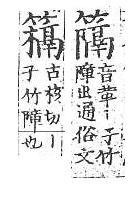 𥴩音革丨子竹
障出通俗文
古核切丨
子竹障也